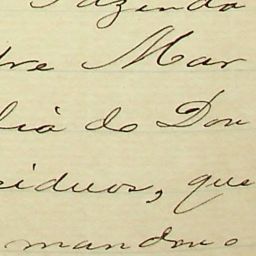 Fazenda
dre Mar
lia do Dou
siduos, que
mandou o